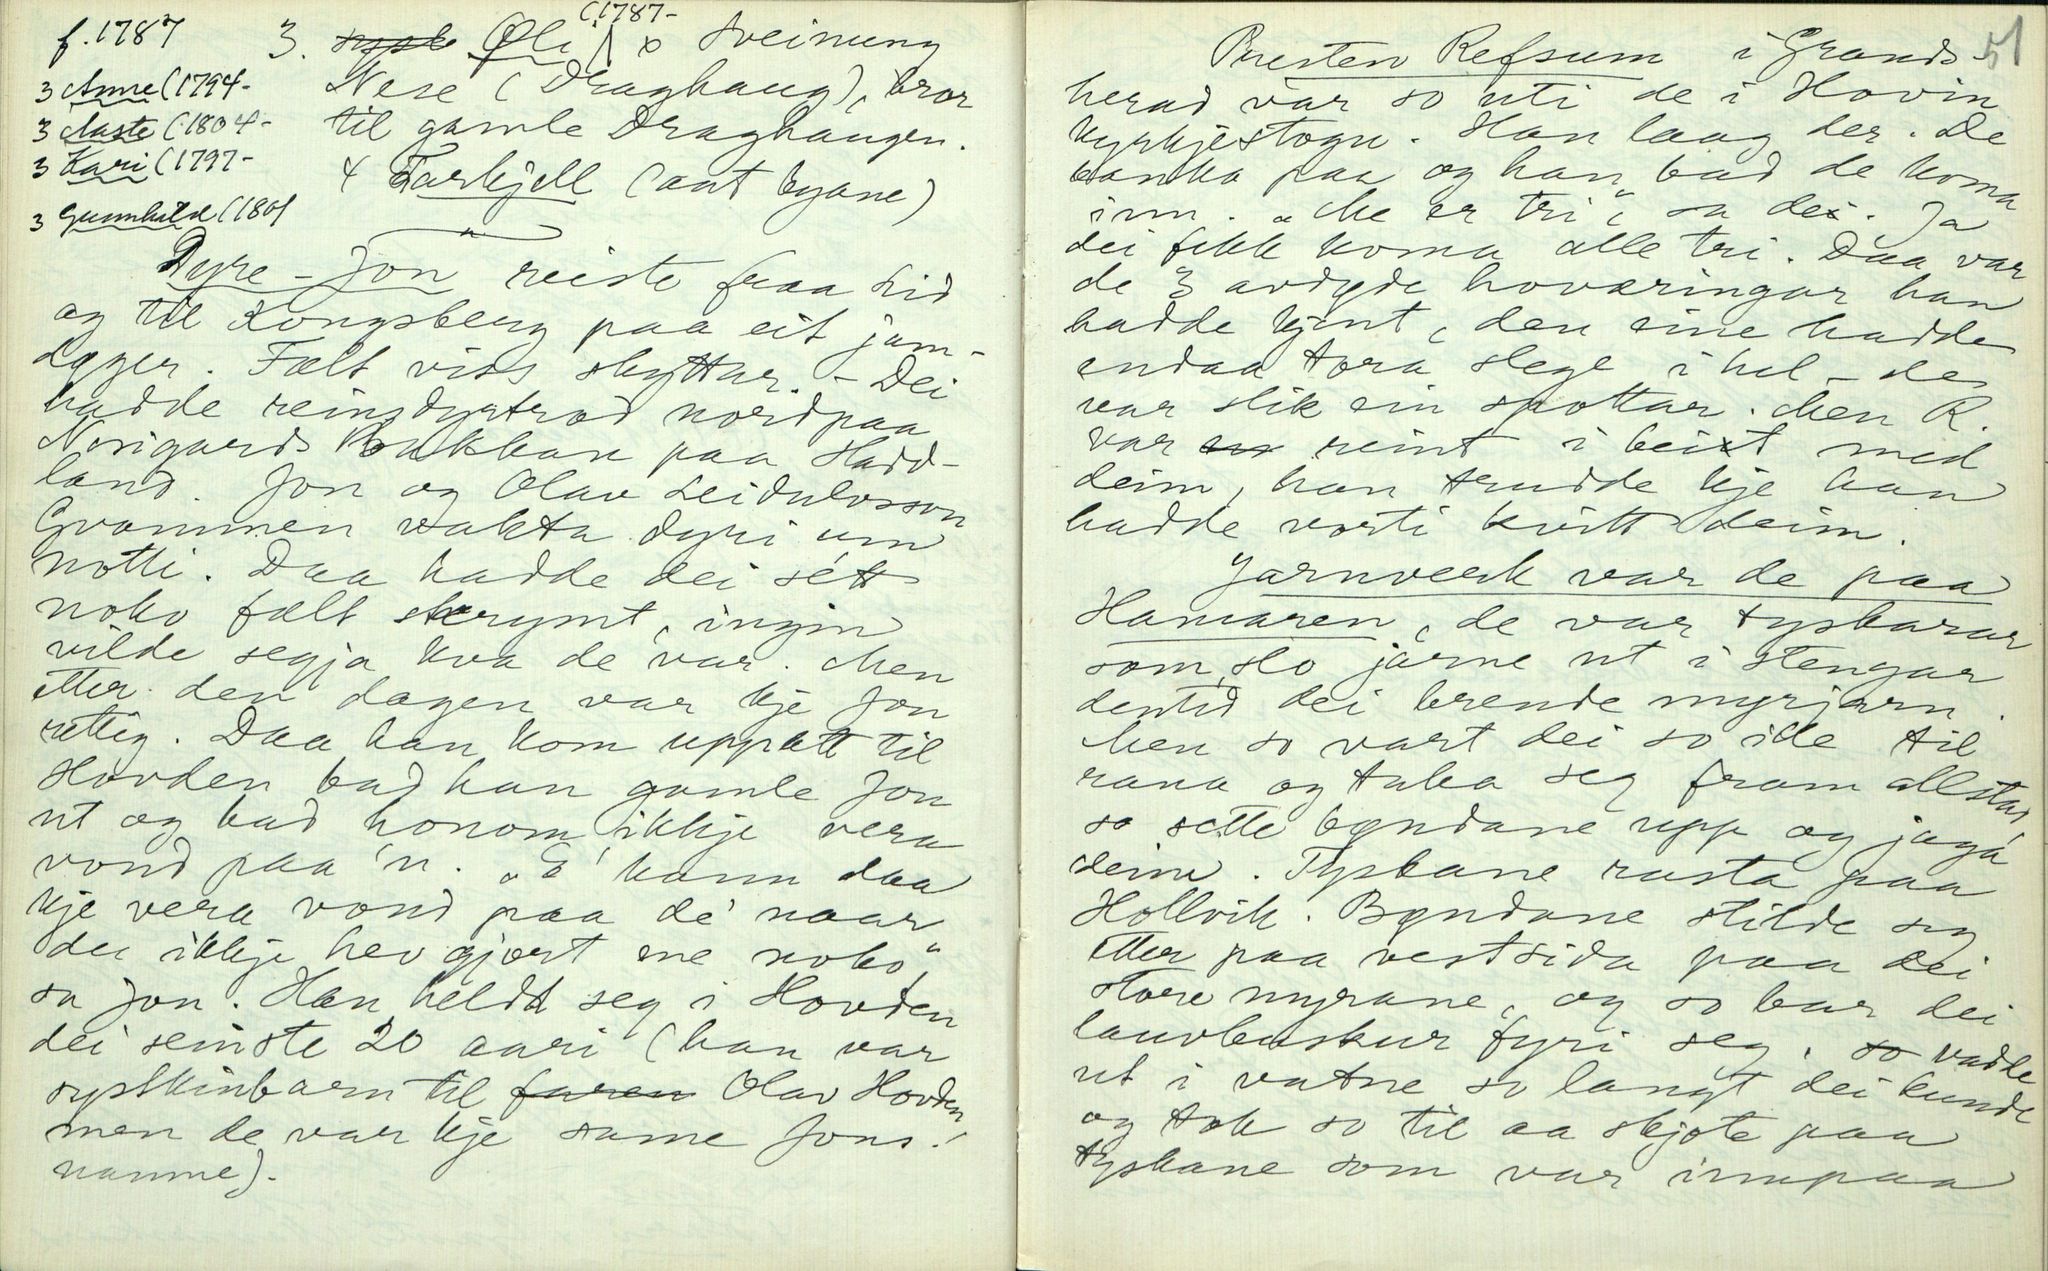 f. 1787
3. Øli (1787- x Sveinung
3 Anne (1794-
Nese (Draghaug), bror
3 Aaste (1804-
til gamle Draghaugen.
3 Kari (1797-
4 Tarkjell (aat byane)
3 Gunnhild (1801
Dyre-Jon reiste fraa Lid
og til Kongsberg paa eit jam-
døger. Fælt viss skyttar. - Dei
hadde reinsdyrtrod nordpaa
Norigards Bakkan paa Hadd-
land. Jon og Olav Leidulvsson
Grommen vakta dyri um
notti. Daa hadde dei sétt
noko fælt skrymt, ingin
vilde segja kva de var. Men
etter den dagen var kje Jon
rettig. Daa han kom uppatt til
Hovden bad han gamle Jon
ut og bad honom ikkje vera
vond paa 'n. „E' kann daa
kje vera vond paa dé naar
du ikkje hev gjort me noko",
sa Jon. Han heldt seg i Hovden
dei seinste 20 aari (han var
syskinbarn til faren Olav Hovden
men de var kje same Jons-
namne).
51
Presten Refsum i Grands-
herad var so uti de i Hovin
kyrkjestogu. Han laag der. De
banka paa og han bad de koma
inn. „Me er tri", sa dei. Ja
dei fekk koma alle tri. Daa var
de 3 avdøde hoværingar han
hadde kjent, den eine hadde
endaa Tora slege i hel - de
var slik ein spottar. Men R.
var reint i beit med
deim, han trudde kje han
hadde vorti kvitt deim.
Jarnverk var de paa
Hamaren, de var tyskarar
som slo jarne ut i stengar
dentid dei brende myrjarn.
Men so vart dei so ille til
rana og taka seg fram allstad,
so sette bøndane upp og jaga
deim. Tyskane rasta paa
Hollvik. Bøndane stilde seg
etter paa vestsida paa dei
store myrane, og so bar dei
lauvbuskur fyri seg, so vadde
ut i vatne so langt dei kunde
og tok so til aa skjote paa
tyskane som var innpaa